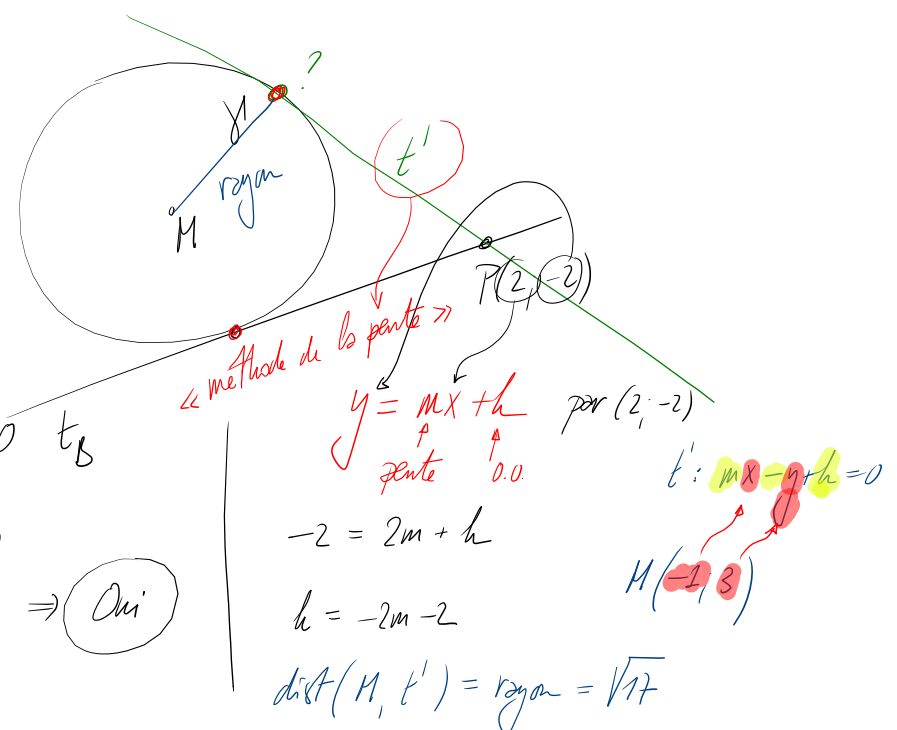 ?
γ
rayon
M
t'
P(2, -2)
« méthode de la pente »
y = mx + h par (2; -2)
pente O.O.
t_B
t' : mx - y + h = 0
-2 = 2m + h
M(-1; 3)
⇒ Oui
h = -2m - 2
dist(M, t') = rayon = √17